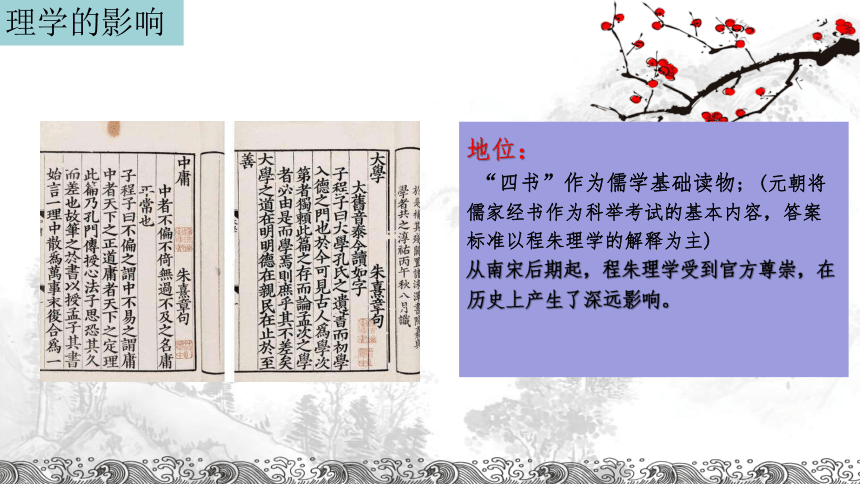 理学的影响
中庸
朱熹章句
中者不偏不倚無過不及之名庸
平常也
子程子曰不偏之謂中不易之謂庸
中者天下之正道庸者天下之定理
此篇乃孔門傳授心法子思恐其久
而差也故筆之於書以授孟子其書
始言一理中散爲萬事末復合爲一
學者共之淳祐丙午秋八月
大學
朱熹章句
大舊音泰今讀如字
子程子曰大學孔氏之遺書而初學
入德之門也於今可見古人爲學次
第者獨賴此篇之存而論孟次之學
者必由是而學焉則庶乎其不差矣
大學之道在明明德在親民在止於至
善
地位：
“四书”作为儒学基础读物；(元朝将
儒家经书作为科举考试的基本内容，答案
标准以程朱理学的解释为主)
从南宋后期起，程朱理学受到官方尊崇，在
历史上产生了深远影响。